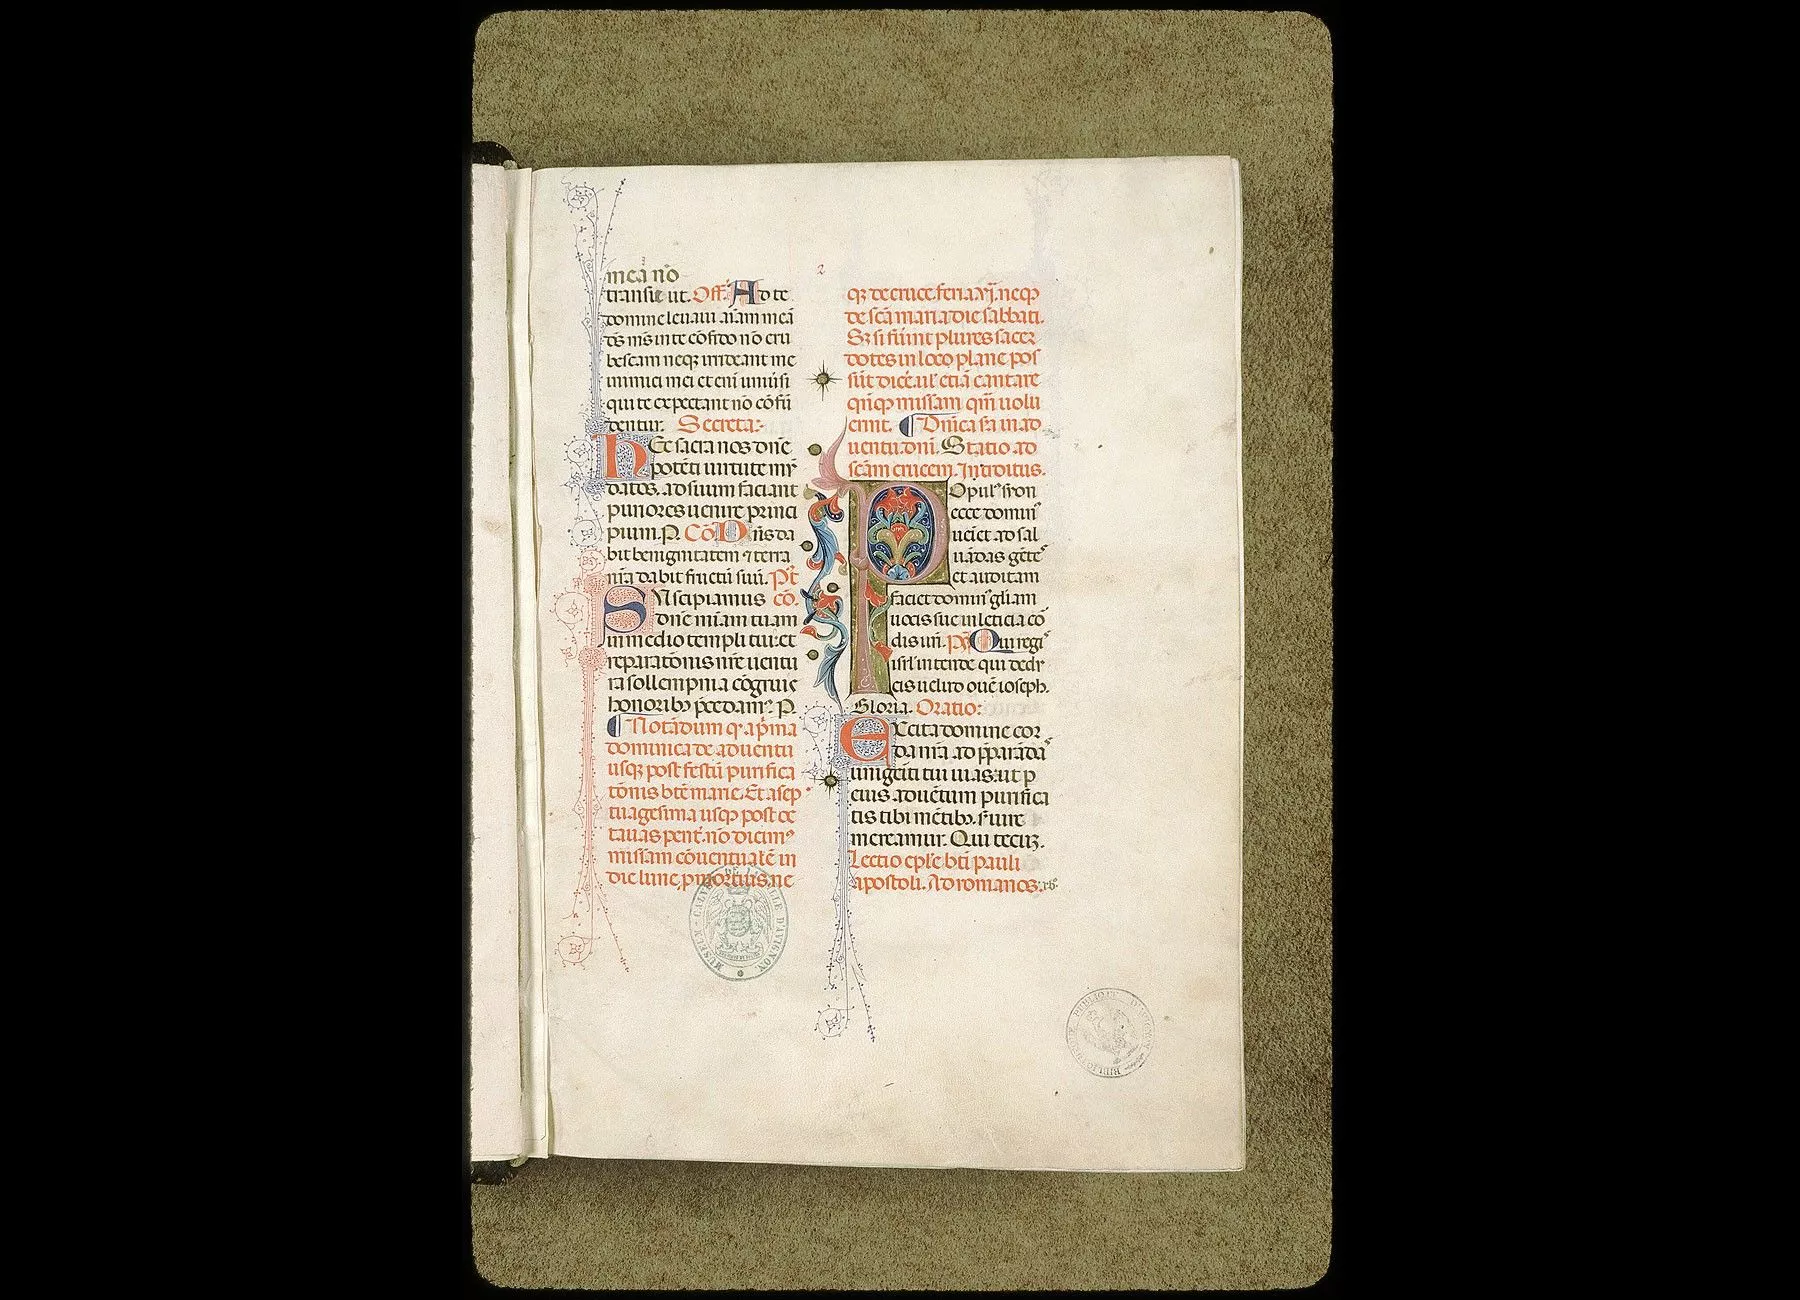 meā nō
transiēt ut. Off. Ad te
domine leuaui aīam meā
ds̄ ms̄ in te cōfido nō eru
bescam neqz irrideant me
inimici mei et eni uniūsi
qui te expectant nō cōfū
dentur. Secreta:
HEc sacra nos dn̄e
potēti uirtute mū
datos. ad suum faciant
puriores uenire princi
pium. P. Cō. Dn̄s da
bit benignitatem ⁊ terra
nr̄a dabit fructū suū. Pt
SUscipiamus cō.
dn̄e mīam tuam
in medio templi tui: et
reparatōnis nr̄e uentu
ra sollempnia cōgruis
honoribꝫ p̄cedamꝰ. P.
¶ Notādum qꝫ a pͥma
dominica de aduentu
usqꝫ post festū purifica
tōnis bt̄e marie. Et a sep
tuagesima usqꝫ post oc
tauas pent. nō dicimꝰ
missam cōuentualē in
die lune p̱ mortuis ne
2
qꝫ de cruce feria vj. neqꝫ
de scā maria die sabbati.
Sꝫ si fūint plures sacer
dotes in loco plane pos
sūt dicē. ul' etiā cantare
qm̄ uolu
erint. ¶ Dn̄ica s̄a in ad
uentu. dn̄i. Statio ad
scām crucem. Introitus.
POpul' syon
ecce dominꝰ
ueīet ad sal
uādas gētes
et auditam
faciet dominꝰ gl'iam
uocis sue in leticia cō
dis ur̄i. Ps. Qui regiˢ
isrl' intende qui dedˢ
cis uelud ouē ioseph.
Gloria. Oratio:
EXcita domine cor
da nr̄a ad p̄parādaˢ
unigēiti tui uias. ut p
eius aduētum purifica
tis tibi mētibꝫ. s'uire
mereamur. Qui tecuꝫ.
Lectio epl'e bt̄i pauli
apostoli. Ad romanos. xv.
MUSEUM CALVET DE LA VILLE D'AVIGNON